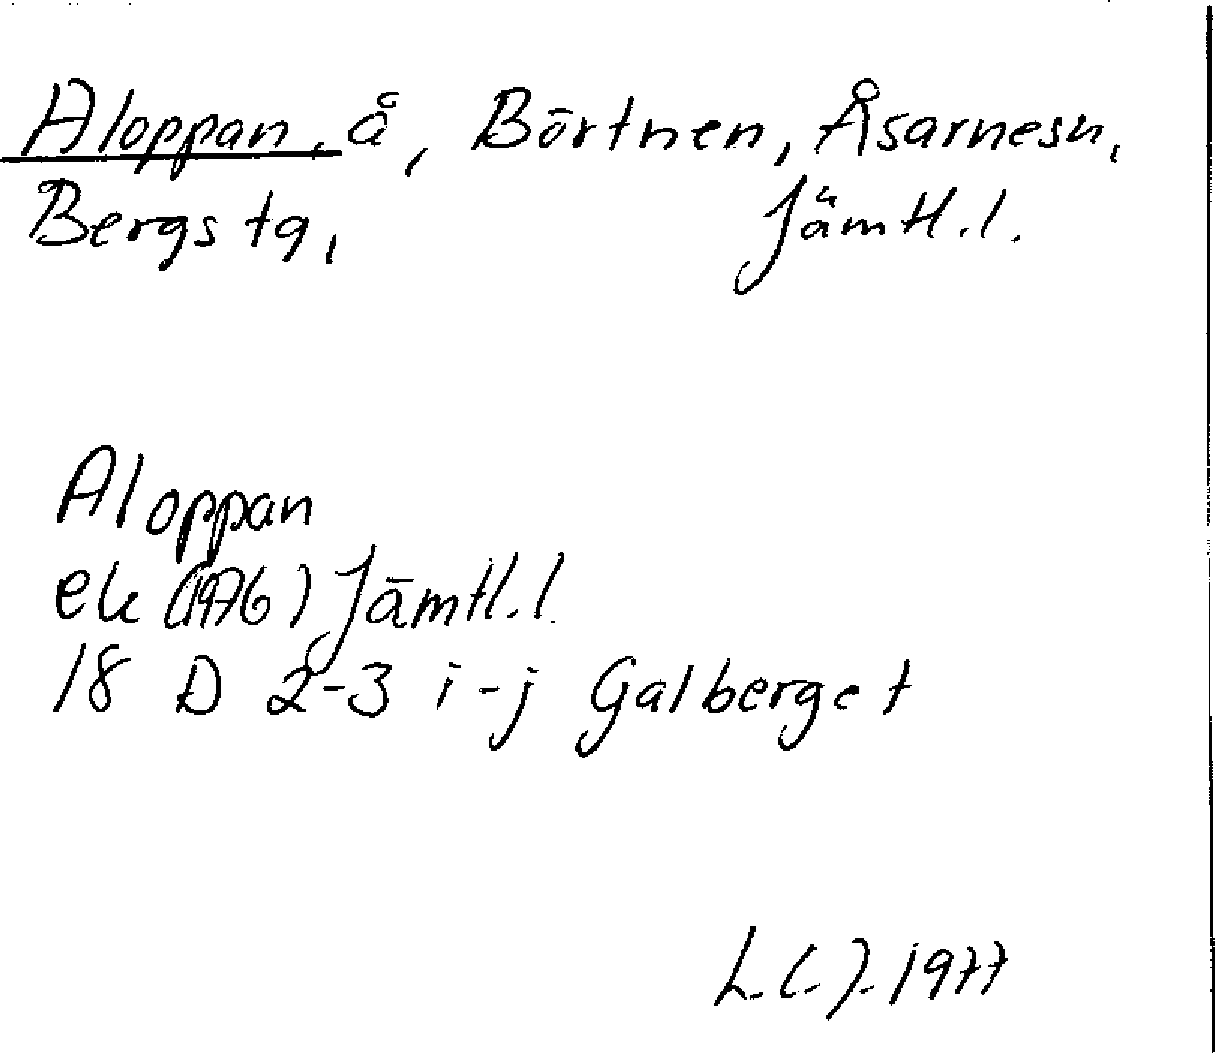 Aloppan, å, Börtnen, Åsarnesn,
Bergs tg, Jämtl.l.
Aloppan
ek (1976) Jämtl.l.
18 D 2-3 i-j Galberget
1977